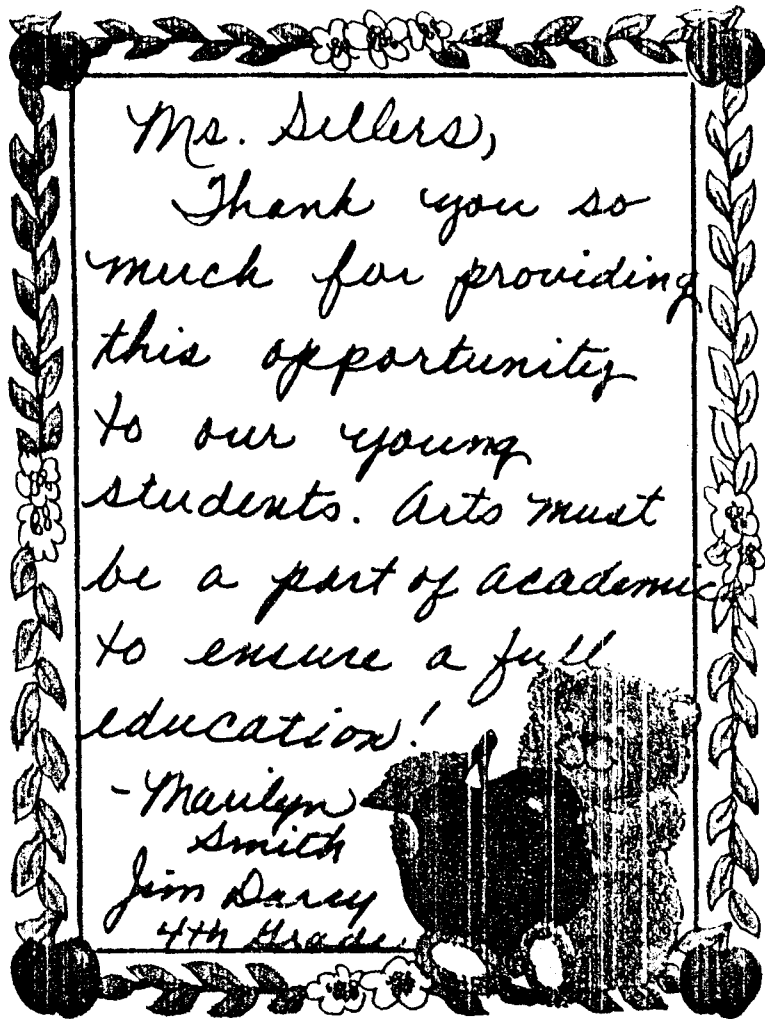 Ms. Sellers,
Thank you so
much for providing
this opportunity
to our young
students. Arts must
be a part of academics
to ensure a full
education!
-Marilyn
Smith
Jim Darcy
4th Grade